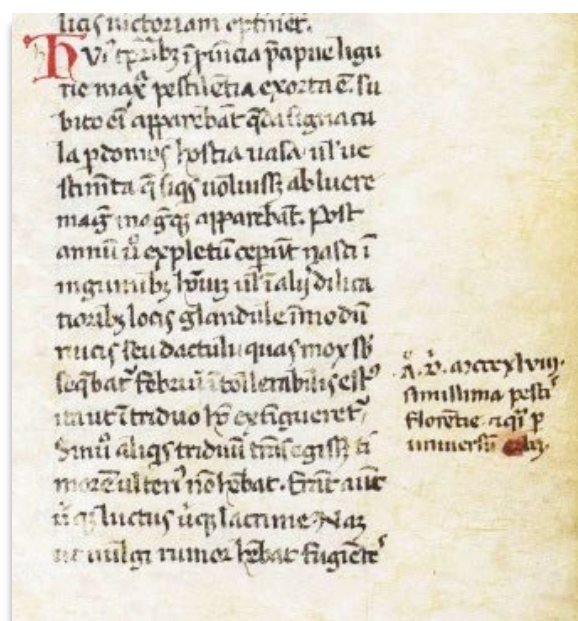 licis uictoriam optinet.
Hui᷒ tp̄ribꝫ ī ꝓuīcia p̄cipue ligu
rie maxͣ pestilētia exorta ē. su
bito eī apparebāt q̄dā signacu
la ꝑ domos hostia uasa ul᷒ ue
stimta q̄ siq̇s uoluissꝫ abluere
mag᷒ magqꝫ apparebāt. Post
annū ů expletū ceperūt nasci ī
inguinibꝫ hoīum ul᷒ ī alijs dilica
tioribꝫ locis glandule ī modū
nucis seu dactuli quas mox sb
seq̄bat᷑ febriū ītollerabilis est᷒
ita ut ī triduo hō extingueret᷑.
Sin ů aliq̇s triduū trāsegissꝫ ti
morē ulteri᷒ nō hēbat. Erāt aūt
ubiqꝫ luctus ubiqꝫ lacrime. Naꝫ
ut uulgi rumor hēbat fugiētes
A. D. mcccxlviii.
simillima pesti᷒
florentie ⁊ q̇si ꝑ
uniuersū